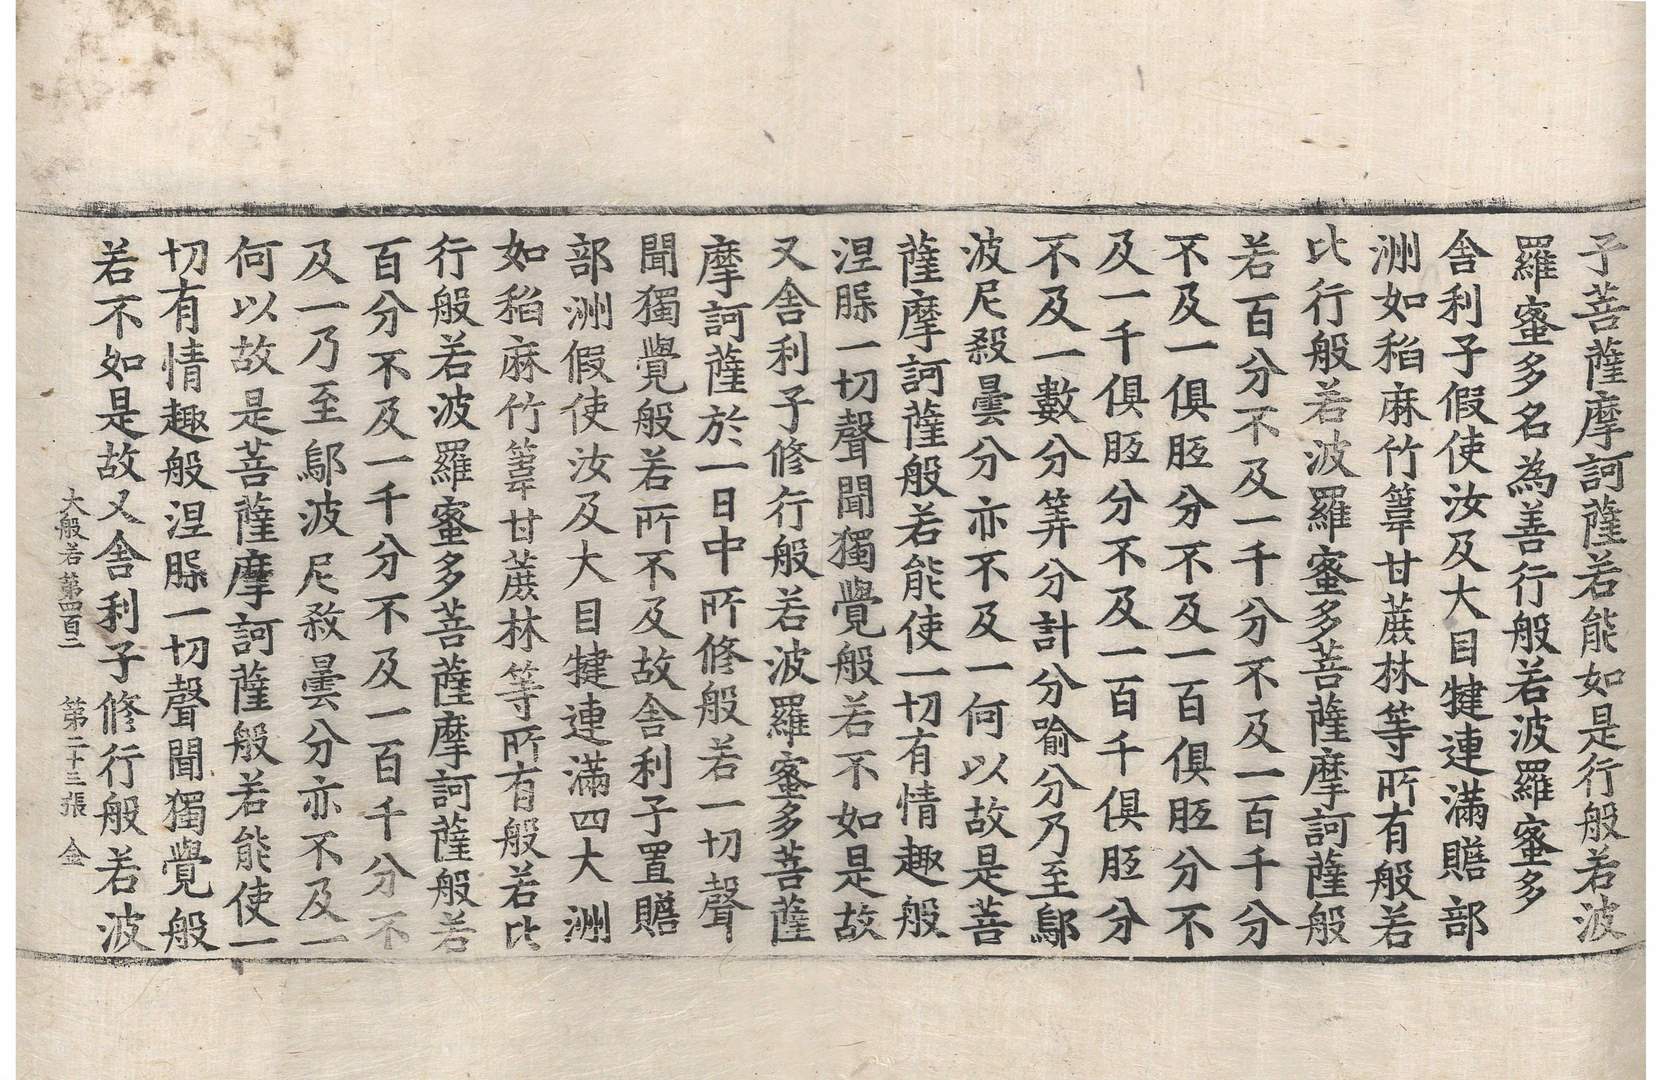 子菩薩摩訶薩若能如是行般若波
羅蜜多名為善行般若波羅蜜多
舎利子假使汝及大目犍連滿贍部
洲如稻麻竹䓸甘蔗林等所有般若
比行般若波羅蜜多菩薩摩訶薩般
若百分不及一千分不及一百千分
不及一俱胝分不及一百俱胝分不
及一千俱胝分不及一百千俱胝分
不及一數分筭分計分喻分乃至鄔
波尼殺曇分亦不及一何以故是菩
薩摩訶薩般若能使一切有情趣般
涅槃一切聲聞獨覺般若不如是故
又舎利子修行般若波羅蜜多菩薩
摩訶薩於一日中所修般若一切聲
聞獨覺般若所不及故舎利子置贍
部洲假使汝及大目犍連滿四大洲
如稻麻竹䓸甘蔗林等所有般若比
行般若波羅蜜多菩薩摩訶薩般若
百分不及一千分不及一百千分不
及一乃至鄔波尼敎曇分亦不及一
何以故是菩薩摩訶薩般若能使一
切有情趣般涅槃一切聲聞獨覺般
若不如是故又舎利子修行般若波
大般若第四百二 第二十三張 金